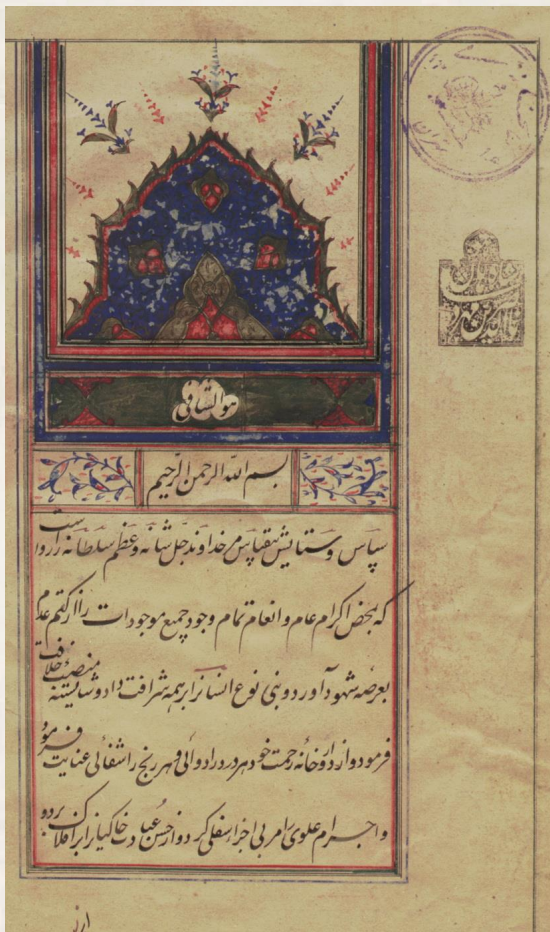 هو الشافی
بسم الله الرحمن الرحیم
سپاس و ستایش بیقیاس مر خداوند جل شانه و عظم سلطانه را رواست
که بمحض اکرام عام و انعام تمام وجود جمیع موجودات را از کتم عدم
بعرصه شهود آورد و بنی نوع انسانرا بر همه شرافت داد و شایسته منصب خلافت
فرمود و از دواخانه رحمت خود هر درد را دوائی و هر رنج را شفائی عنایت فرمود
و اجرام علوی را مربی اجزا سفلی کرد و از حسن عبادت خاکیانرا بر افلاک برد و